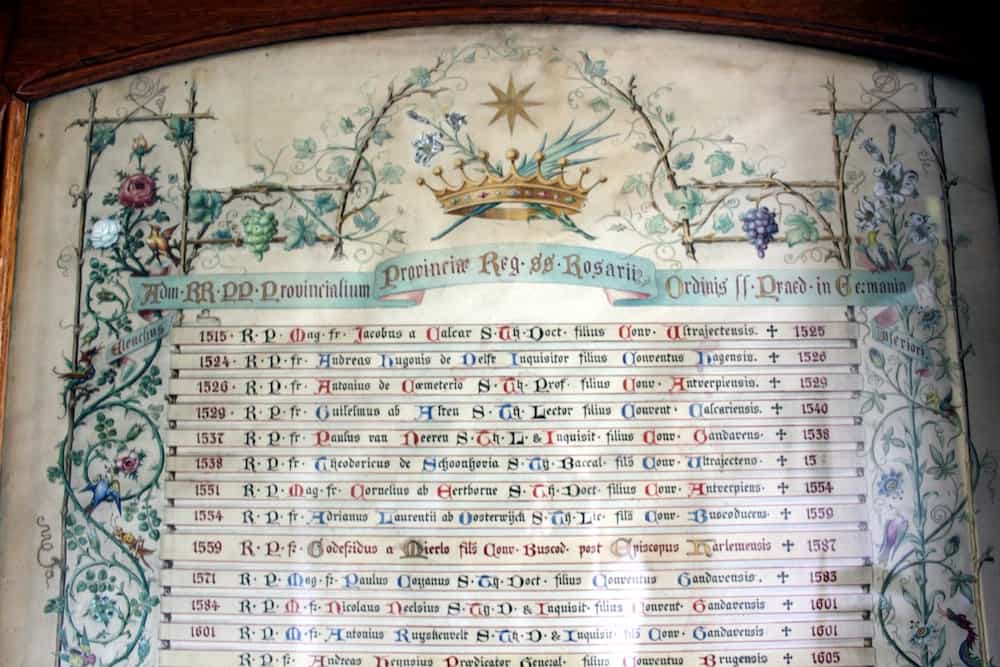 Provinciæ Reg · SS · Rosarii
Adm · RR · PP · Provincialium
Ordinis SS · Praed · in Germania
Elenchus
inferiori
1515 · R · P · Mag · fr · Jacobus a Calcar S · Th · Doct · filius Conv · Ultrajectensis · ✝ 1525
1524 · R · P · fr · Andreas Hugonis de Delft Inquisitor filius Conventus Hagensis · ✝ 1526
1526 · R · P · fr · Antonius de Cœmeterio S · Th · Prof · filius Conv · Antverpiensis · ✝ 1529
1529 · R · P · fr · Guilelmus ab Alten S · Th · Lector filius Convent · Calcariensis · ✝ 1540
1537 R · P · fr · Paulus van Neeren S · Th · L · & Inquisit · filius Conv · Gandavens · ✝ 1538
1538 R · P · fr · Theodoricus de Schoonhovia S · Th · Baccal · fils Conv · Ultrajectens · ✝
1551 R · P · Mag · fr · Cornelius ab Eertborne S · Th · Doct · filius Conv · Antverpiens · ✝ 1554
1554 R · P · fr · Adrianus Laurentii ab Oosterwijck S · Th · Lic · fils Conv · Buscoducens · ✝ 1559
1559 R · P · fr · Godefridus a Mierlo fils Conv · Buscod · post Episcopus Harlemensis ✝ 1587
1571 R · P · Mag · fr · Paulus Coyanus S · Th · Doct · filius Conventus Gandavensis · ✝ 1583
1584 R · P · M · fr · Nicolaus Neelsius S · Th · D · & Inquisit · filius Convent · Gandavensis ✝ 1601
1601 R · P · M · fr · Antonius Ruyskenvelt S · Th · D · & Inquisit · fils Conv · Gandavensis ✝ 1601
R · P · fr · Andreas Heynsius Prædicator General · filius Conventus Brugensis ✝ 1605